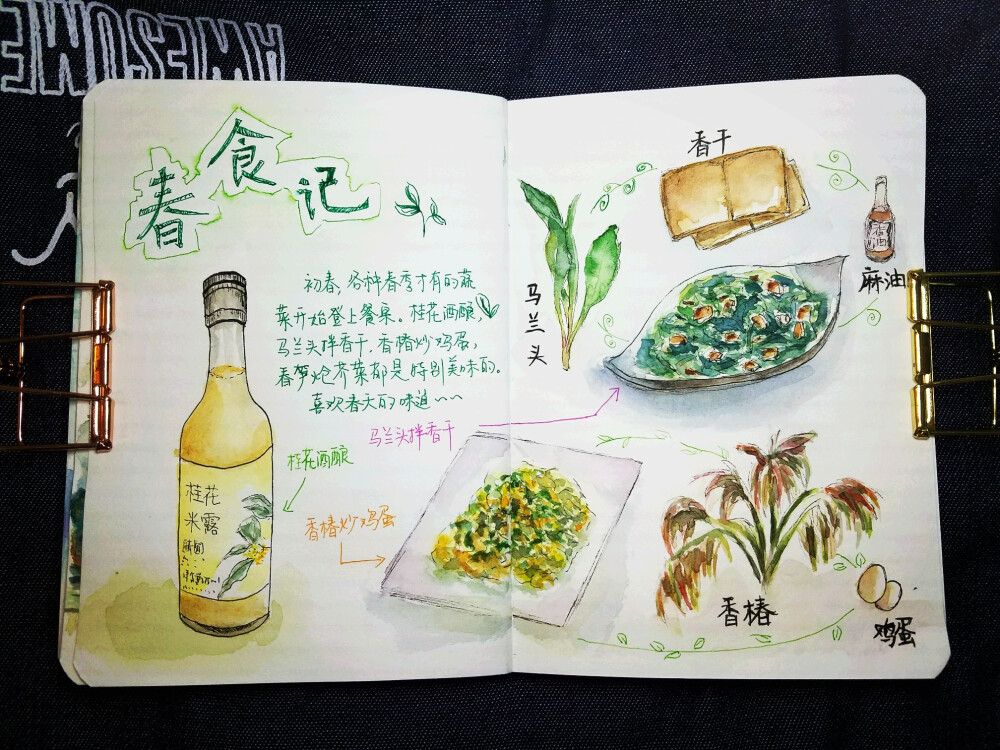 AWESOME
春食记
初春,各种春季才有的蔬
菜开始登上餐桌。桂花酒酿,
马兰头拌香干,香椿炒鸡蛋,
春笋炝芥菜都是特别美味的。
喜欢春天的味道~~
马兰头拌香干
桂花酒酿
香椿炒鸡蛋
桂花
米露
香干
马兰头
香油
麻油
香椿
鸡蛋
堆糖
duitang.com